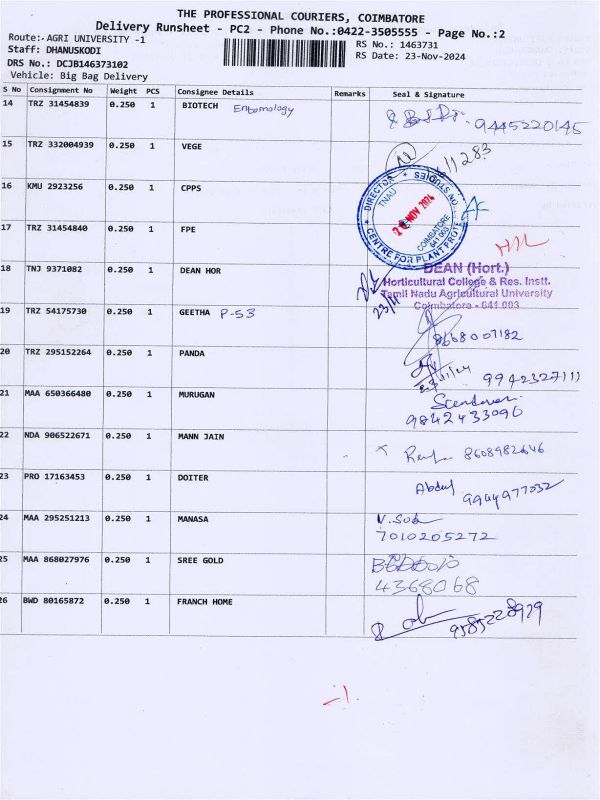 THE PROFESSIONAL COURIERS, COIMBATORE
Delivery Runsheet - PC2 - Phone No.:0422-3505555 - Page No.:2
Route:- AGRI UNIVERSITY -1
RS No.: 1463731
Staff: DHANUSKODI
RS Date: 23-Nov-2024
DRS No.: DCJB146373102
Vehicle: Big Bag Delivery
S No Consignment No Weight PCS Consignee Details Remarks Seal & Signature
14 TRZ 31454839 0.250 1 BIOTECH Entomology 9445220145
15 TRZ 332004939 0.250 1 VEGE 11283
16 KMU 2923256 0.250 1 CPPS
DIRECTOR
TNAU
NOV 2024
COIMBATORE
641 003
CENTRE FOR PLANT PROTE STUDIES
17 TRZ 31454840 0.250 1 FPE
18 TNJ 9371082 0.250 1 DEAN HOR
DEAN (Hort.)
Horticultural College & Res. Instt.
Tamil Nadu Agricultural University
Coimbatore - 641 003
23/11
19 TRZ 54175730 0.250 1 GEETHA P-53 8668007182
20 TRZ 295152264 0.250 1 PANDA 23/11/24 9942327111
21 MAA 650366480 0.250 1 MURUGAN
9842433096
22 NDA 906522671 0.250 1 MANN JAIN 8608982646
23 PRO 17163453 0.250 1 DOITER Abdul
9944977032
24 MAA 295251213 0.250 1 MANASA
7010205272
25 MAA 868027976 0.250 1 SREE GOLD
4368068
26 BWD 80165872 0.250 1 FRANCH HOME 9585228929